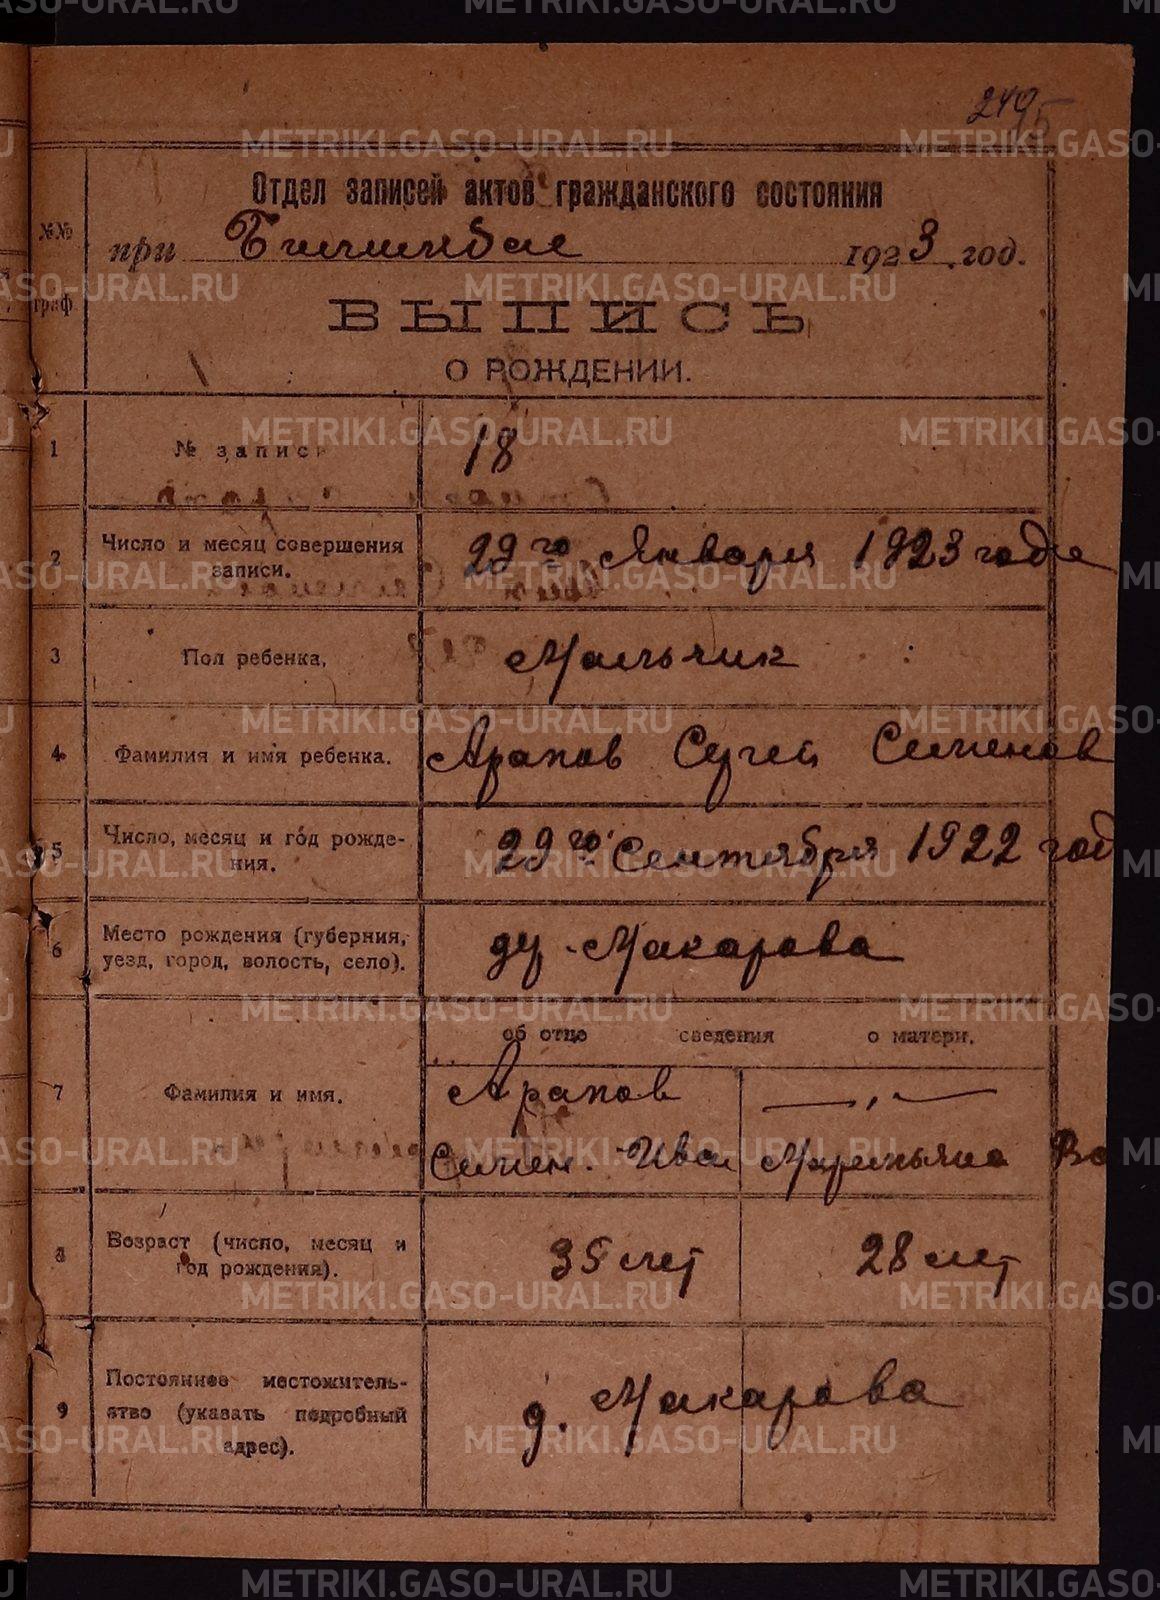 Отдел записей актов гражданского состояния
№№ граф.
при Билимбае 1923 год.
ВЫПИСЬ
О РОЖДЕНИИ.
1 № записи 18
2 Число и месяц совершения записи. 29го Января 1923 года
3 Пол ребенка. Мальчик
4 Фамилия и имя ребенка. Арапов Сергей Семенов
5 Число, месяц и год рожде-
ния. 29го Сентября 1922 год
6 Место рождения (губерния,
уезд, город, волость, село). дер. Макарова
об отце сведения о матери.
7 Фамилия и имя. Арапов —„—
Семен. Иван Маремьяна Ва
8 Возраст (число, месяц и
год рождения). 35 лет 28 лет
9 Постоянное местожитель-
ство (указать подробный
адрес). д. Макарова
METRIKI.GASO-URAL.RU